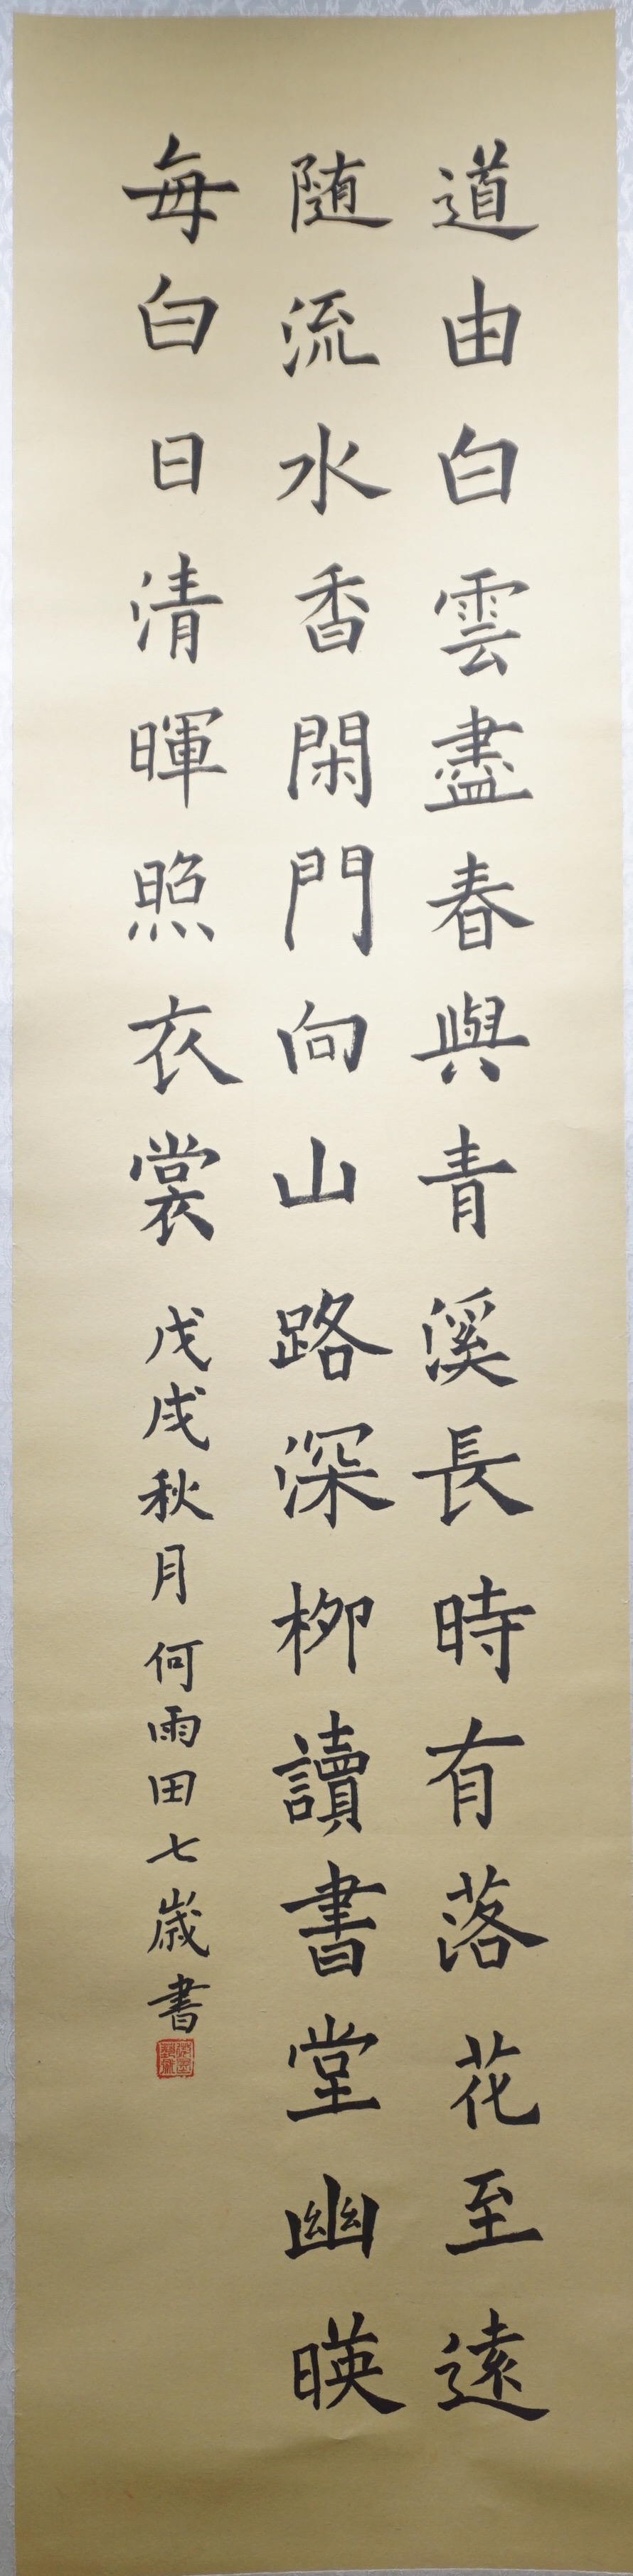 道由白雲盡春與青溪長時有落花至遠
随流水香閑門向山路深栁讀書堂幽暎
每白日清暉照衣裳 戊戌秋月 何雨田七歲書